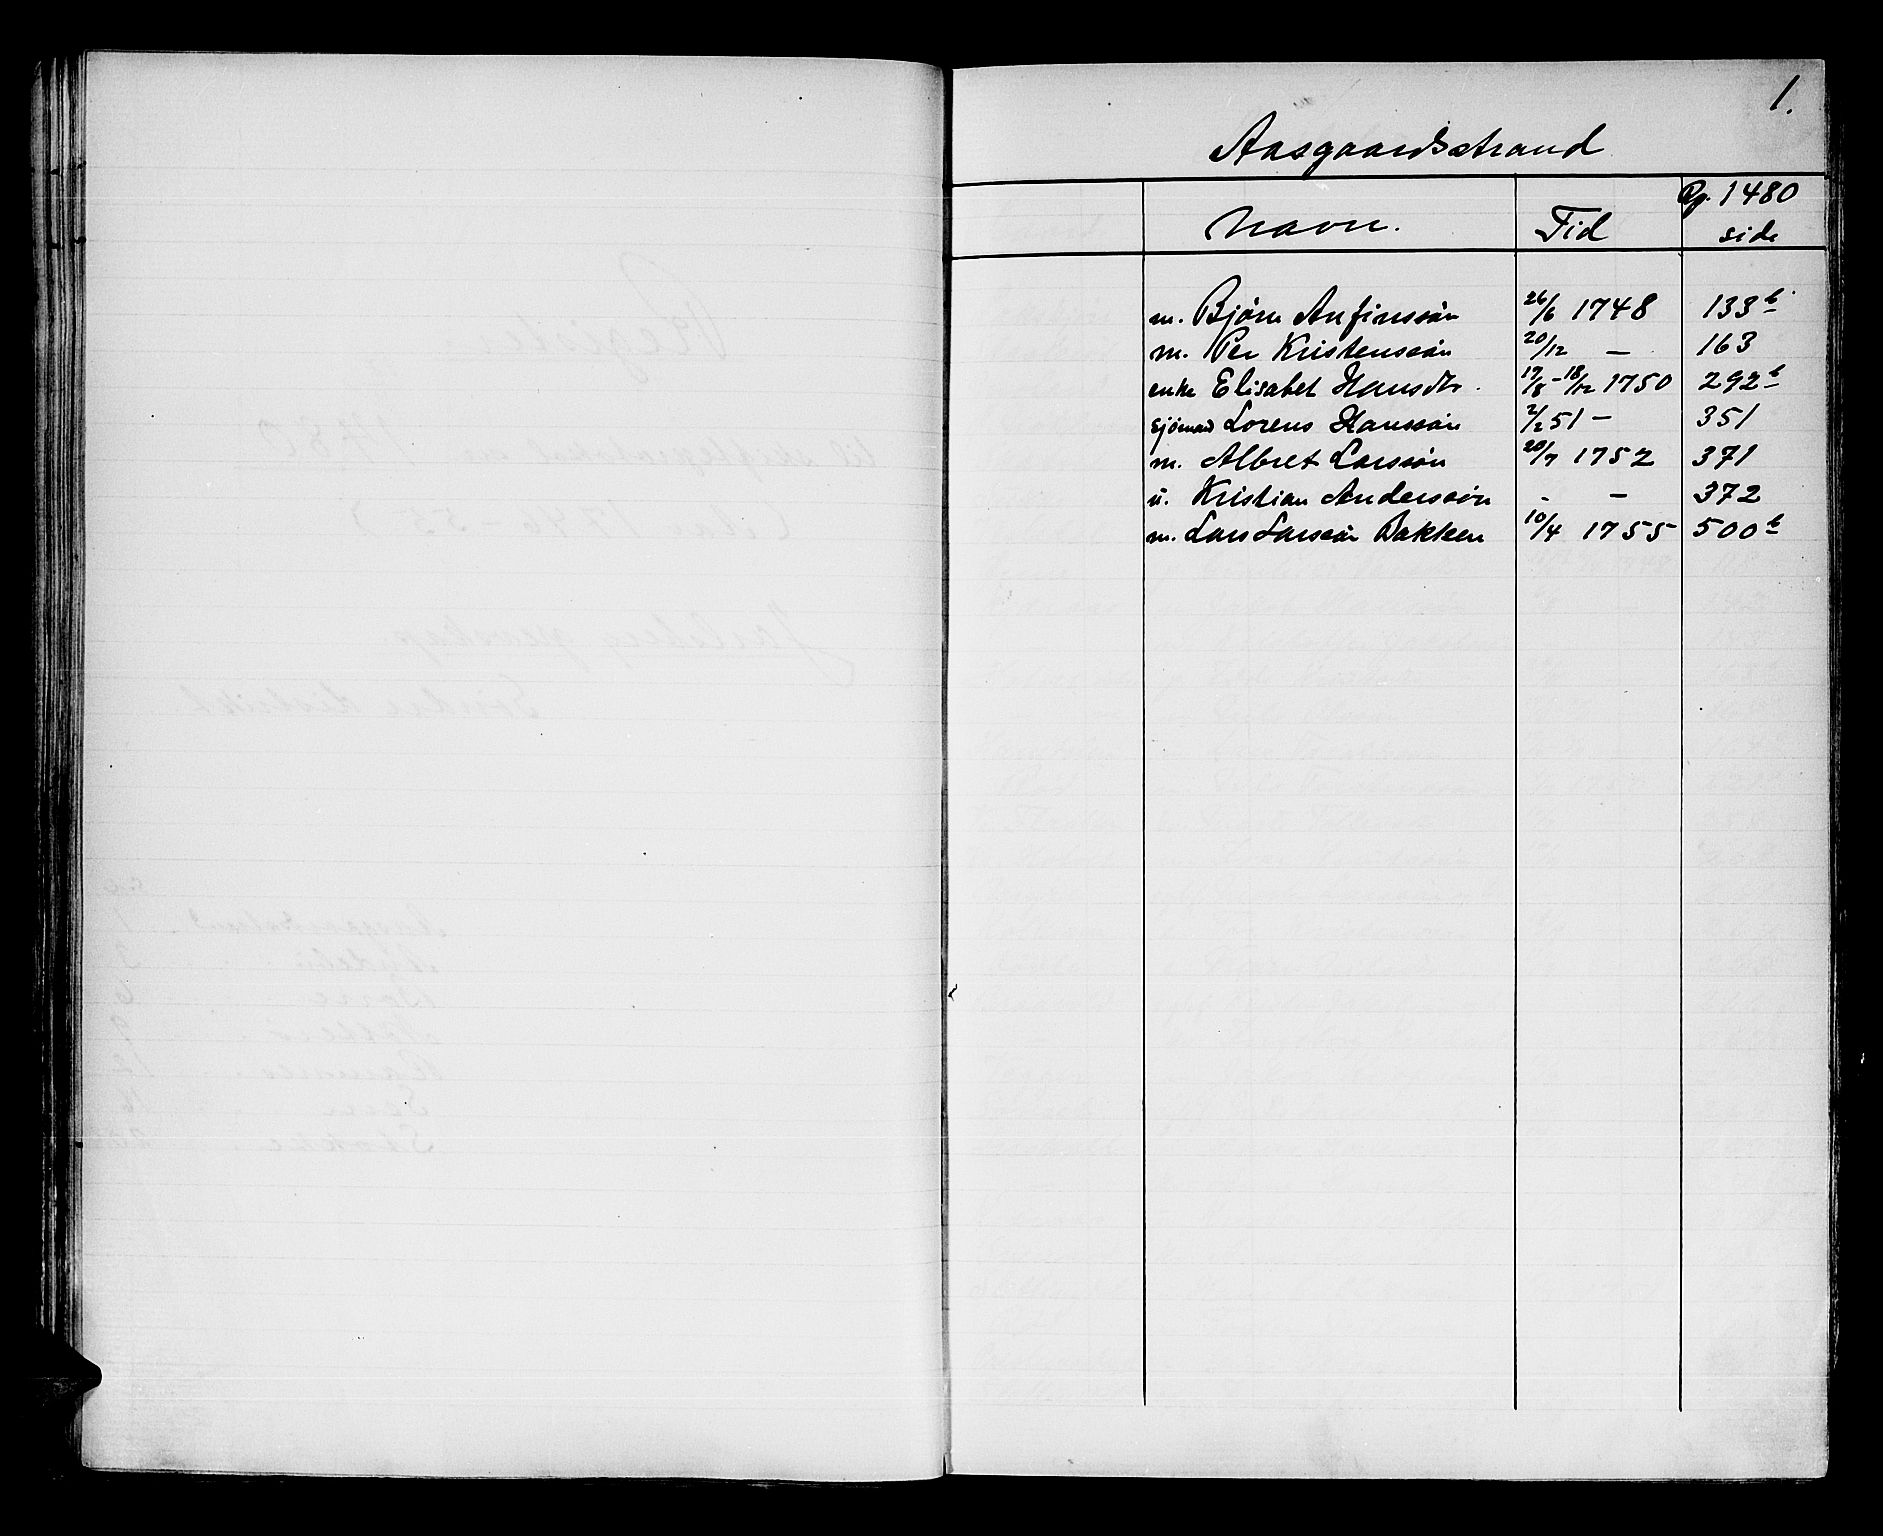 1.
Aasgaardsstrand
Navn. Tid Rg. 1480 side
m. Bjørn Anfinssøn 26/6 1748 133 b
m. Per Kristenssøn 20/12 — 163
enke Elisabet Hansdtr. 17/8 - 18/12 1750 292 b
sjømand Lorens Hanssøn 2/2 51 - 351
m. Albret Larssøn 20/7 1752 371
u. Kristian Anderssøn - — 372
m. Lars Larssøn Bakken 10/4 1755 500 b